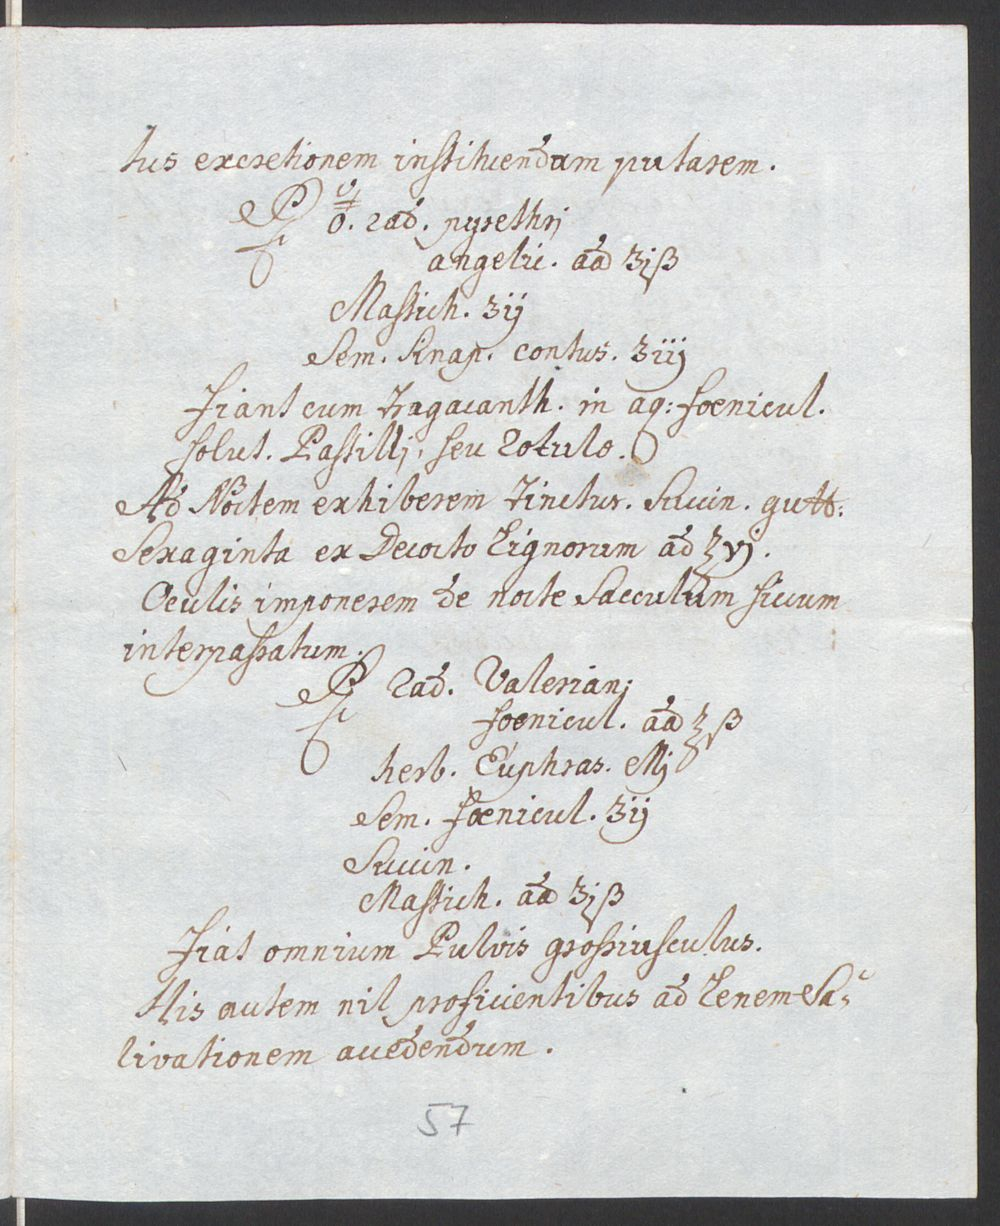 tus excretionem instituendam putarem.
℞ rad. pyrethrj
angelic. aā ʒjß
Mastich. ʒij
Sem. Sinap. contus. ʒiij
Fiant cum Tragacanth. in aq: foenicul.
solut. Pastillj, seu Rotulo.
Ad Noctem exhiberem Tinctur. Succin. gutt:
Sexaginta ex Decocto Lignorum ad ℥vj.
Oculis imponerem de nocte Sacculum siccum
interpassatum.
℞ Rad. Valerian:
foenicul. aā ℥ß
herb. Euphras. Mj
Sem. foenicul. ʒij
Succin.
Mastich. aā ʒjß
Fiat omnium Pulvis grossiusculus.
His autem nil proficientibus ad Lenem Sa-
livationem accedendum.
57